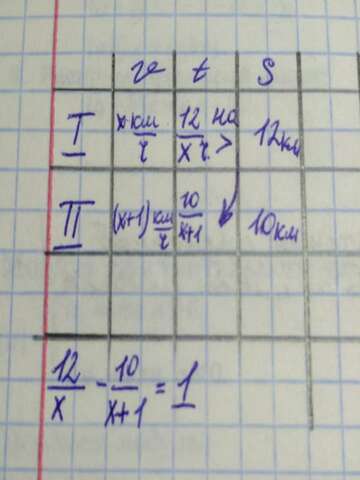 v t S
I x км/ч 12/x ч на > 12 км
II (x+1) км/ч 10/x+1 10 км
12/x - 10/x+1 = 1